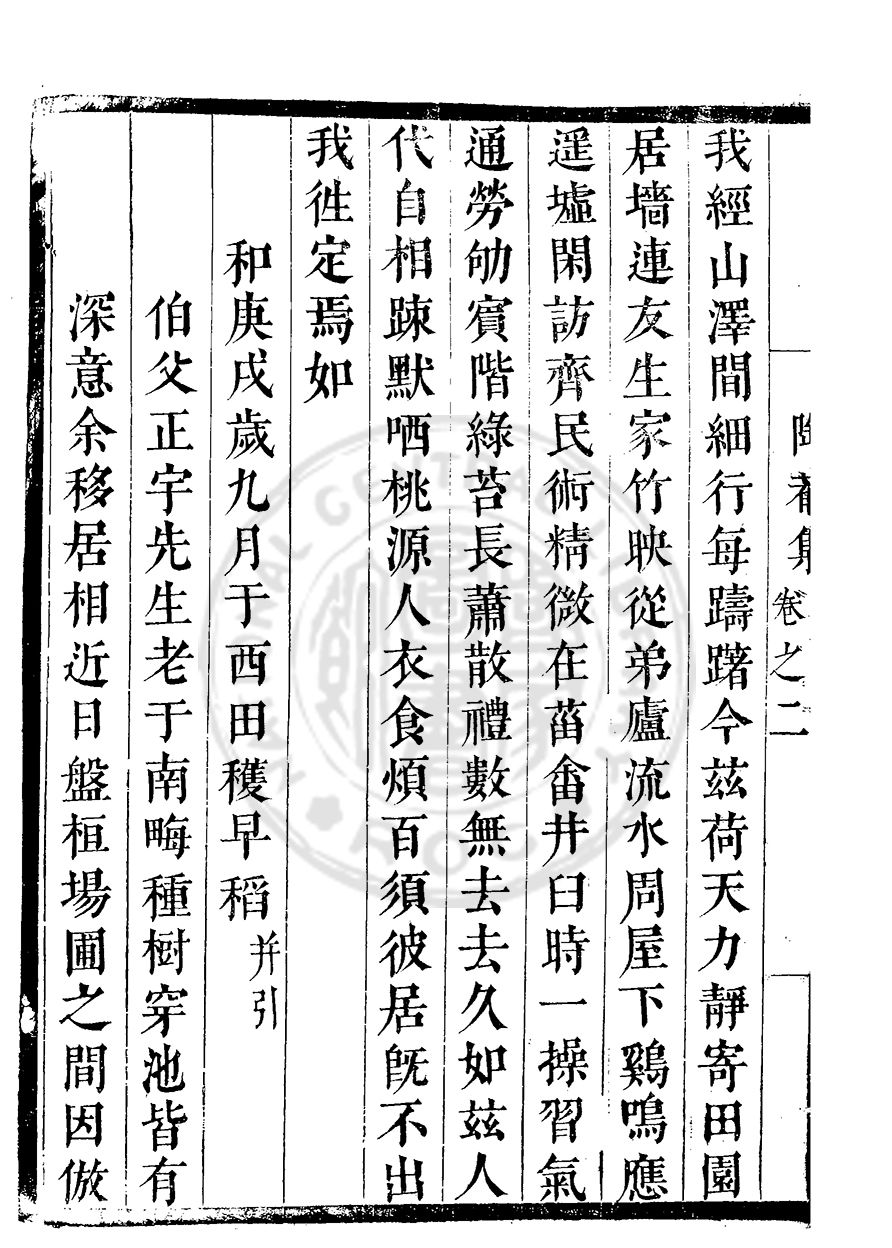 卷之二
我經山澤間細行每躊躇今茲荷天力靜寄田園
居墻連友生家竹映從弟廬流水周屋下鷄鳴應
遥墟閑訪齊民術精微在菑畬井臼時一操習氣
通勞劬賓階綠苔長蕭散禮數無去去久如茲人
代自相踈默哂桃源人衣食煩百須彼居旣不出
我徃定焉如
和庚戌歲九月于西田穫早稻并引
伯父正宇先生老于南畮種樹穿池皆有
深意余移居相近日盤桓場圃之間因倣